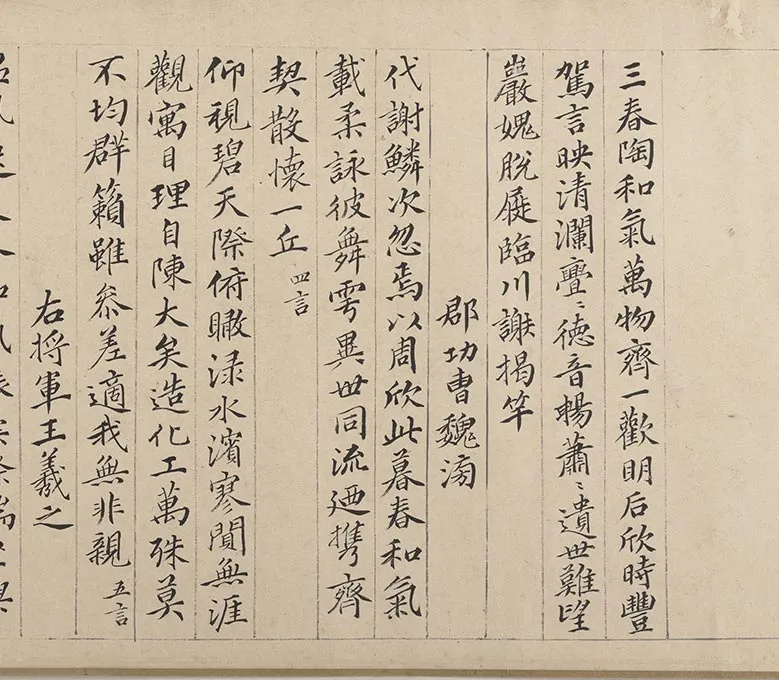 三春陶和氣萬物齊一歡明后欣時豐
駕言映清瀾亹〻德音暢蕭〻遺世難望
巖愧脫屣臨川謝揭竿
郡功曹魏滂
代謝鱗次忽焉以周欣此暮春和氣
載柔詠彼舞雩異世同流迺携齊
契散懷一丘 四言
仰視碧天際俯瞰淥水濱寥閴無涯
觀寓目理自陳大矣造化工萬殊莫
不均群籟雖叅差適我無非親 五言
右将軍王羲之